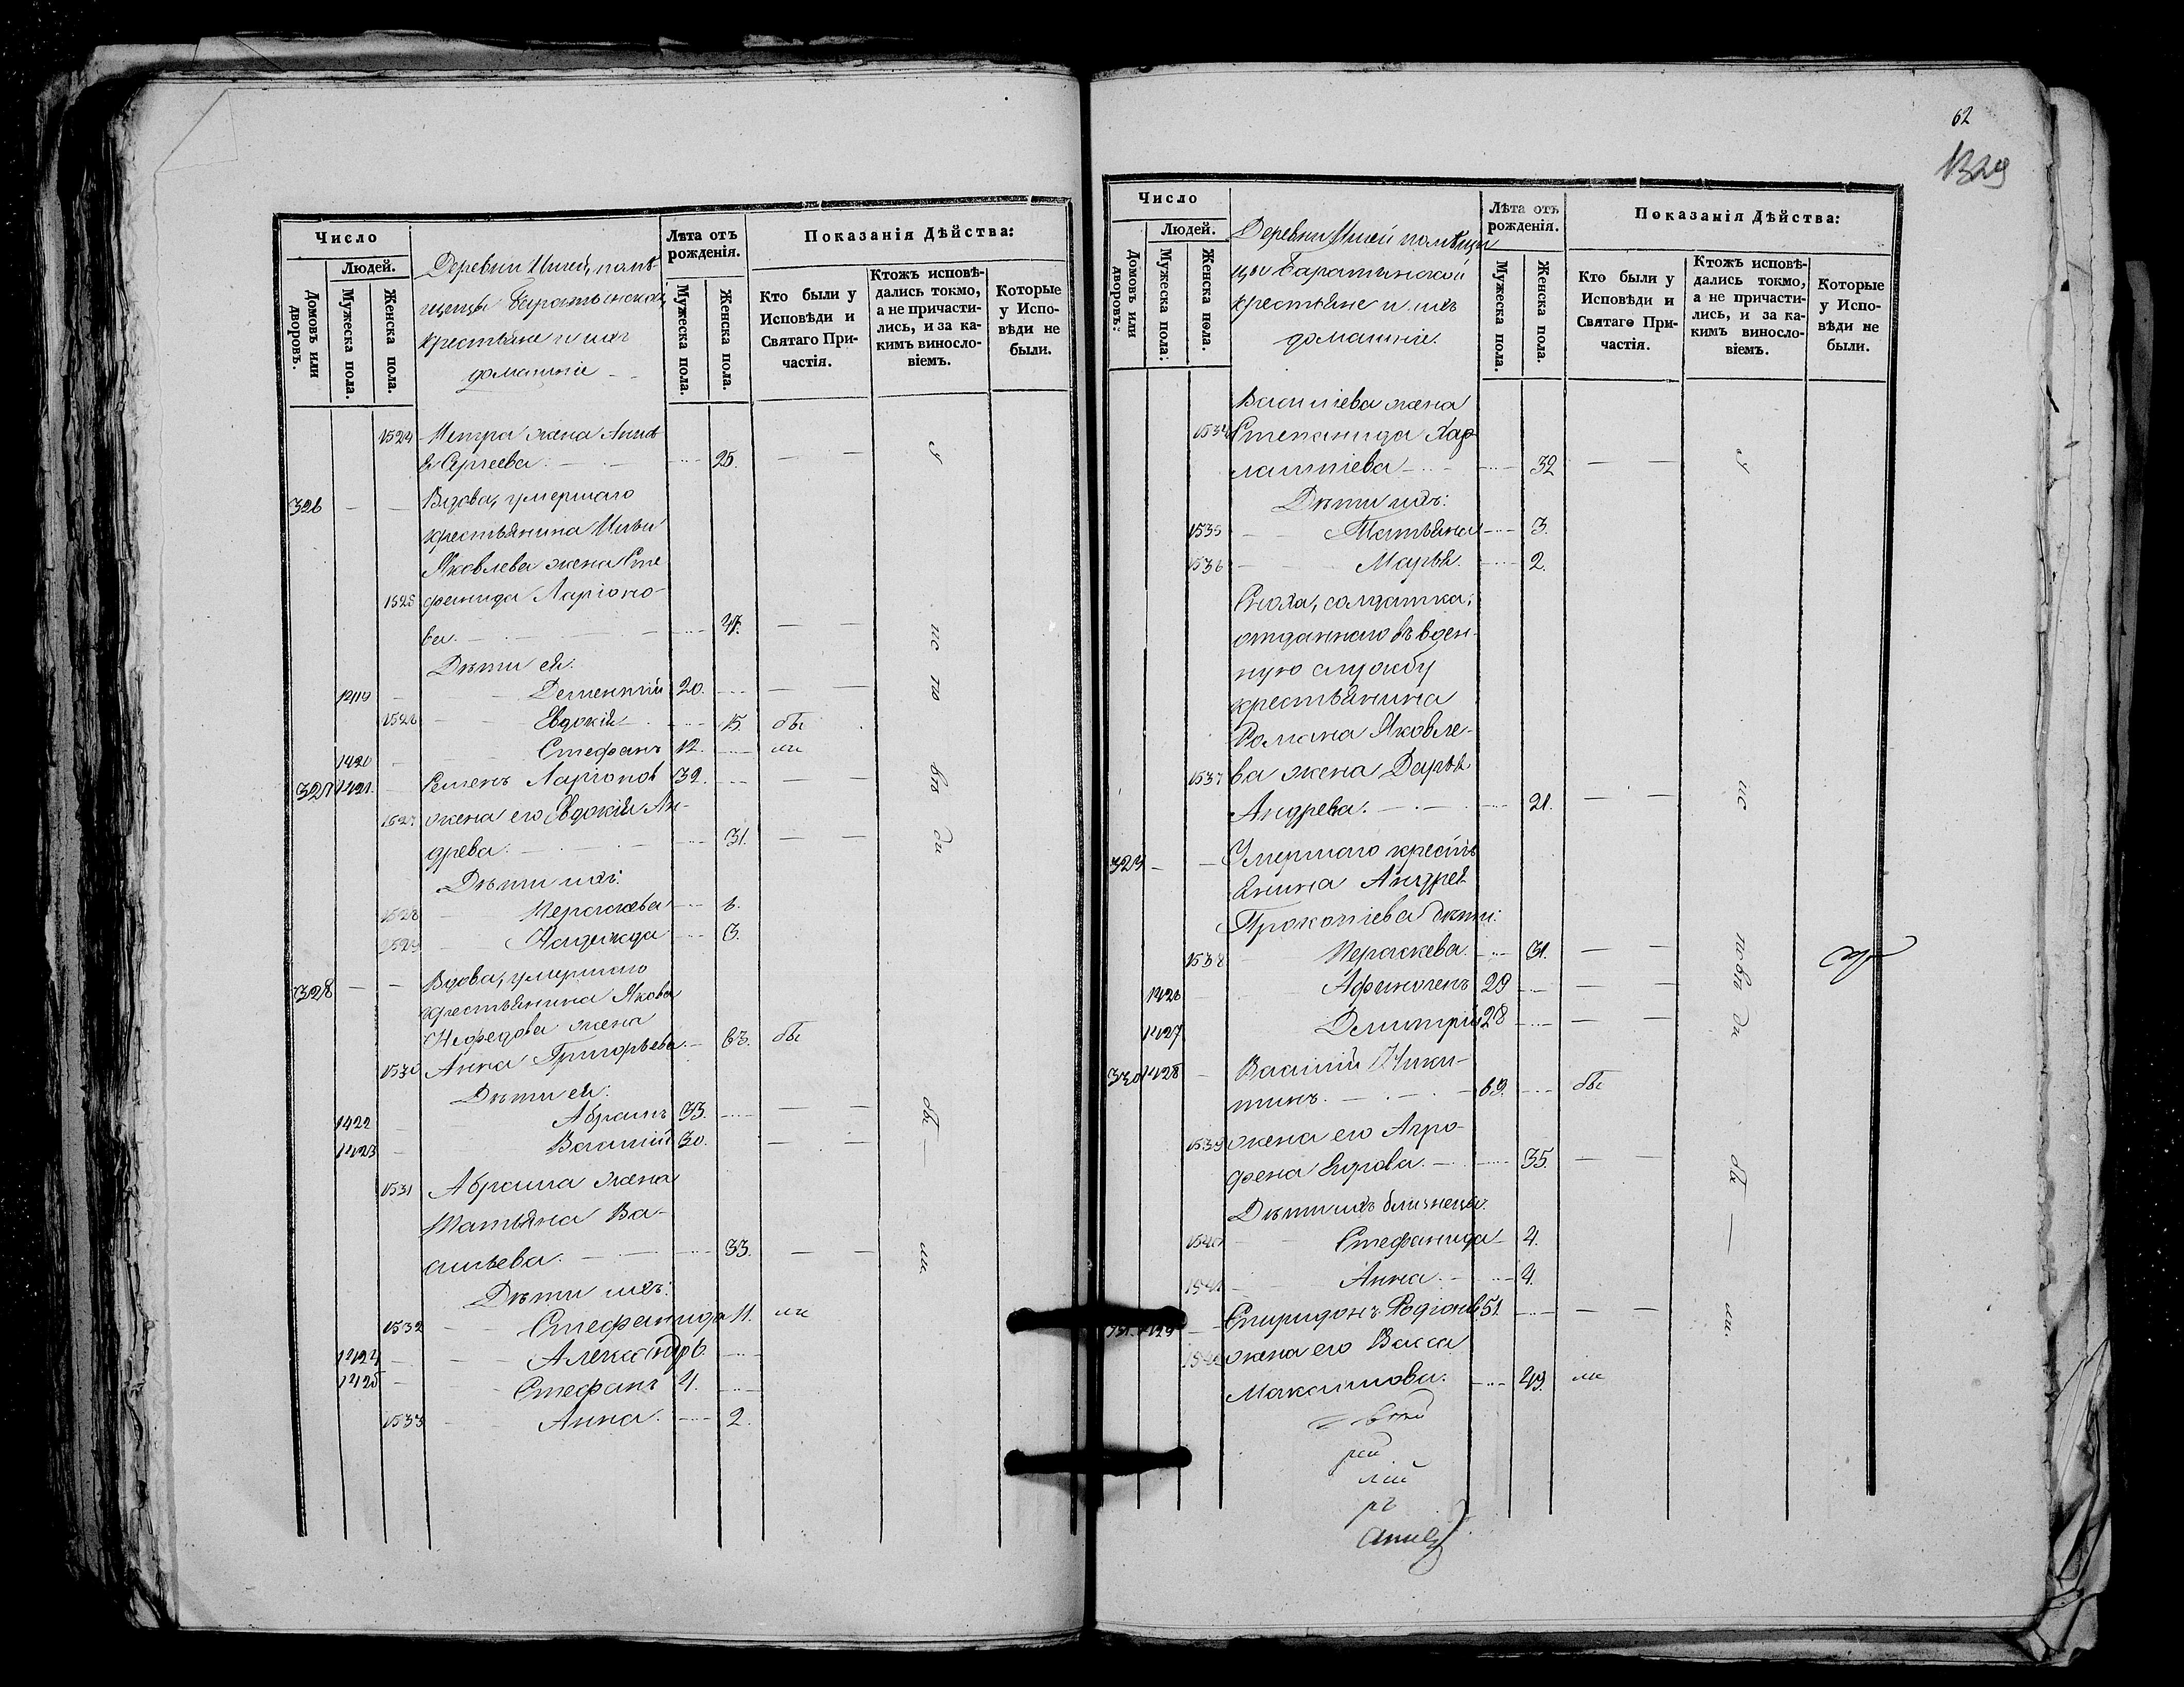 Число
Людей.
Домовъ или дворовъ.
Мужеска пола.
Женска пола.
Деревни помѣ-
щицы Баратынской
крестьяне и ихъ
домашніе
Лѣта отъ рожденія.
Мужеска пола.
Женска пола.
Показанія Дѣйства:
Кто были у Исповѣди и Святаго При-частія.
Ктожъ исповѣ-дались токмо, а не причасти-лись, и за ка-кимъ винословіемъ.
Которые у Испо-вѣди не были.
1524 Петра жена Анна
Сергеева. 25. у
326 Вдова, умершаго
крестьянина Ильи
Яковлева жена Сте
1525 фанида Ларіоно-
ва. 47. ис
Дѣти ея:
1419 Дементій 20. по
1526 Евдокія 15. бы
1420 Стефанъ 12. ли
327 1421 Семенъ Ларіоновъ 32. вѣ
1527 жена его Евдокія Ан-
древа. 31. ди
Дѣти ихъ:
1528 Параскева 6.
1529 Надежда 3.
328 Вдова, умершаго
крестьянина Якова
Нефедова жена
1530 Анна Григорьева 63. бы
Дѣти ея:
1422 Абрамъ 33. бы
1423 Василій 30.
1531 Абрама жена
Татьяна Ва-
сильева. 33. ли
Дѣти ихъ:
1532 Стефанида 11. ли
1424 Александръ 6.
1425 Стефанъ 4.
1533 Анна. 2.
62
1329
Число
Людей.
Домовъ или дворовъ:
Мужеска пола:
Женска пола.
Деревни помѣщи
цы Баратынской
крестьяне и ихъ
домашніе.
Лѣта отъ рожденія.
Мужеска пола.
Женска пола.
Показанія Дѣйства:
Кто были у Исповѣди и Святаго При-частія.
Ктожъ исповѣ-дались токмо, а не причасти-лись, и за ка-кимъ винословіемъ.
Которые у Испо-вѣди не были.
Василіева жена
1534 Степанида Хар-
лампіева 32 у
Дѣти ихъ:
1535 Татьяна 3.
1536 Марья. 2.
Сноха, солдатка,
отданнаго въ воен-
ную службу
крестьянина
Романа Яковле-
1537 ва жена Дарья
Андрева. 21. ис
329 Умершаго кресть
янина Андрея
Прокопіева дѣти:
1538 Параскева. 31. повѣ
1426 Афиногенъ 29
1427 Димитрій 28 ди
330 1428 Василій Ники-
тинъ. 69. бы
1539 жена его Агро-
фена 35. бы
Дѣти ихъ близнецы.
1540 Стефанида 4.
1541 Анна. 4.
331. 1429 Спиридонъ Родіоновъ 51. ли
1542 жена его Васса
Максимова. 49. ли
рей
лій
ръ